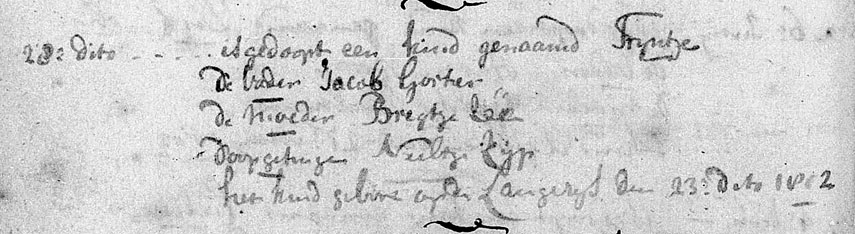 28: dito - - - . is gedoopt een kind genaamd Tryntje
De Vader Jacob Gorter
de Moeder Bregtje
Doopgetuigen Neeltje Kyp
het kind geboren onder Langeryp den 23: dito 1812